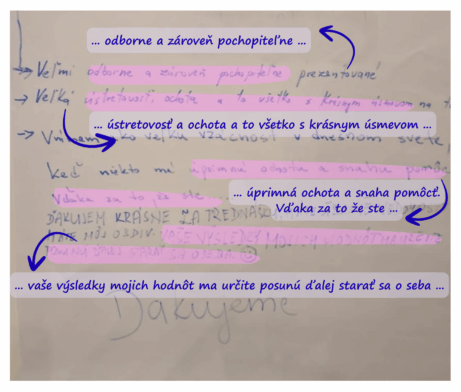 ... odborne a zároveň pochopiteľne ...
→ Veľmi odborne a zároveň pochopiteľne prezentované
→ Veľká ústretovosť, ochota a to všetko s krásnym úsmevom na
... ústretovosť a ochota a to všetko s krásnym úsmevom ...
→ ko veľká vzácnosť v dnešnom svete,
keď niekto má úprimná ochota a snaha pomôc
... úprimná ochota a snaha pomôcť.
Vďaka za to že ste
Vďaka za to že ste ...
ĎAKUJEM KRÁSNE ZA PREDNÁŠ
MÔJ OBDIV. VAŠE VÝSLEDKY
... vaše výsledky mojich hodnôt ma určite posunú ďalej starať sa o seba ...
Ďakujeme